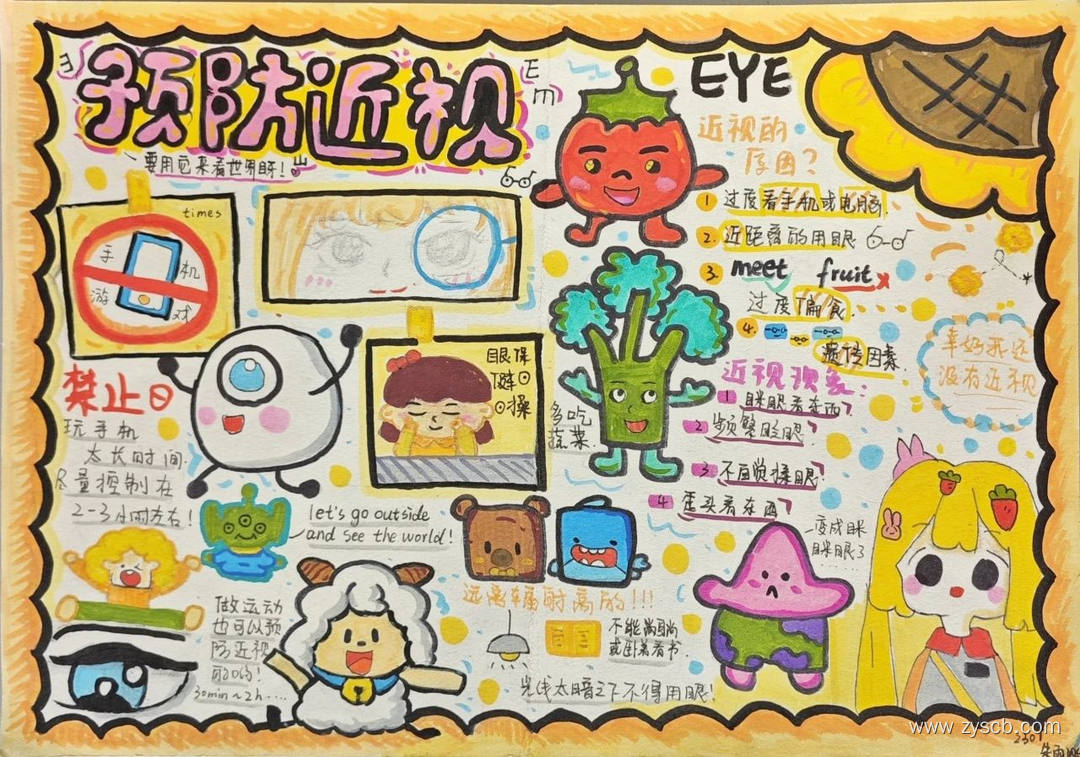 预防近视
E
E
m
要用它来看世界呀!
times
手机
游戏
禁止
玩手机
太长时间
尽量控制在
2-3小时左右!
眼保
健
操
let's go outside
and see the world!
做运动
也可以预
防近视
的哟!
30min~2h....
EYE
近视的
原因?
1 过度看手机或电脑.
2. 近距离的用眼
3. meet fruit
过度偏食.
4.
遗传因素.
多吃
蔬菜
近视现象:
1 眯眼看东西?
2 频繁眨眼?
3 不自觉揉眼?
4 歪头看东西?
幸好我还
没有近视
变成眯
眯眼了
远离辐射高的!!!
不能躺
或卧着看书.
光线太暗之下不得用眼!
www.zyscb.com